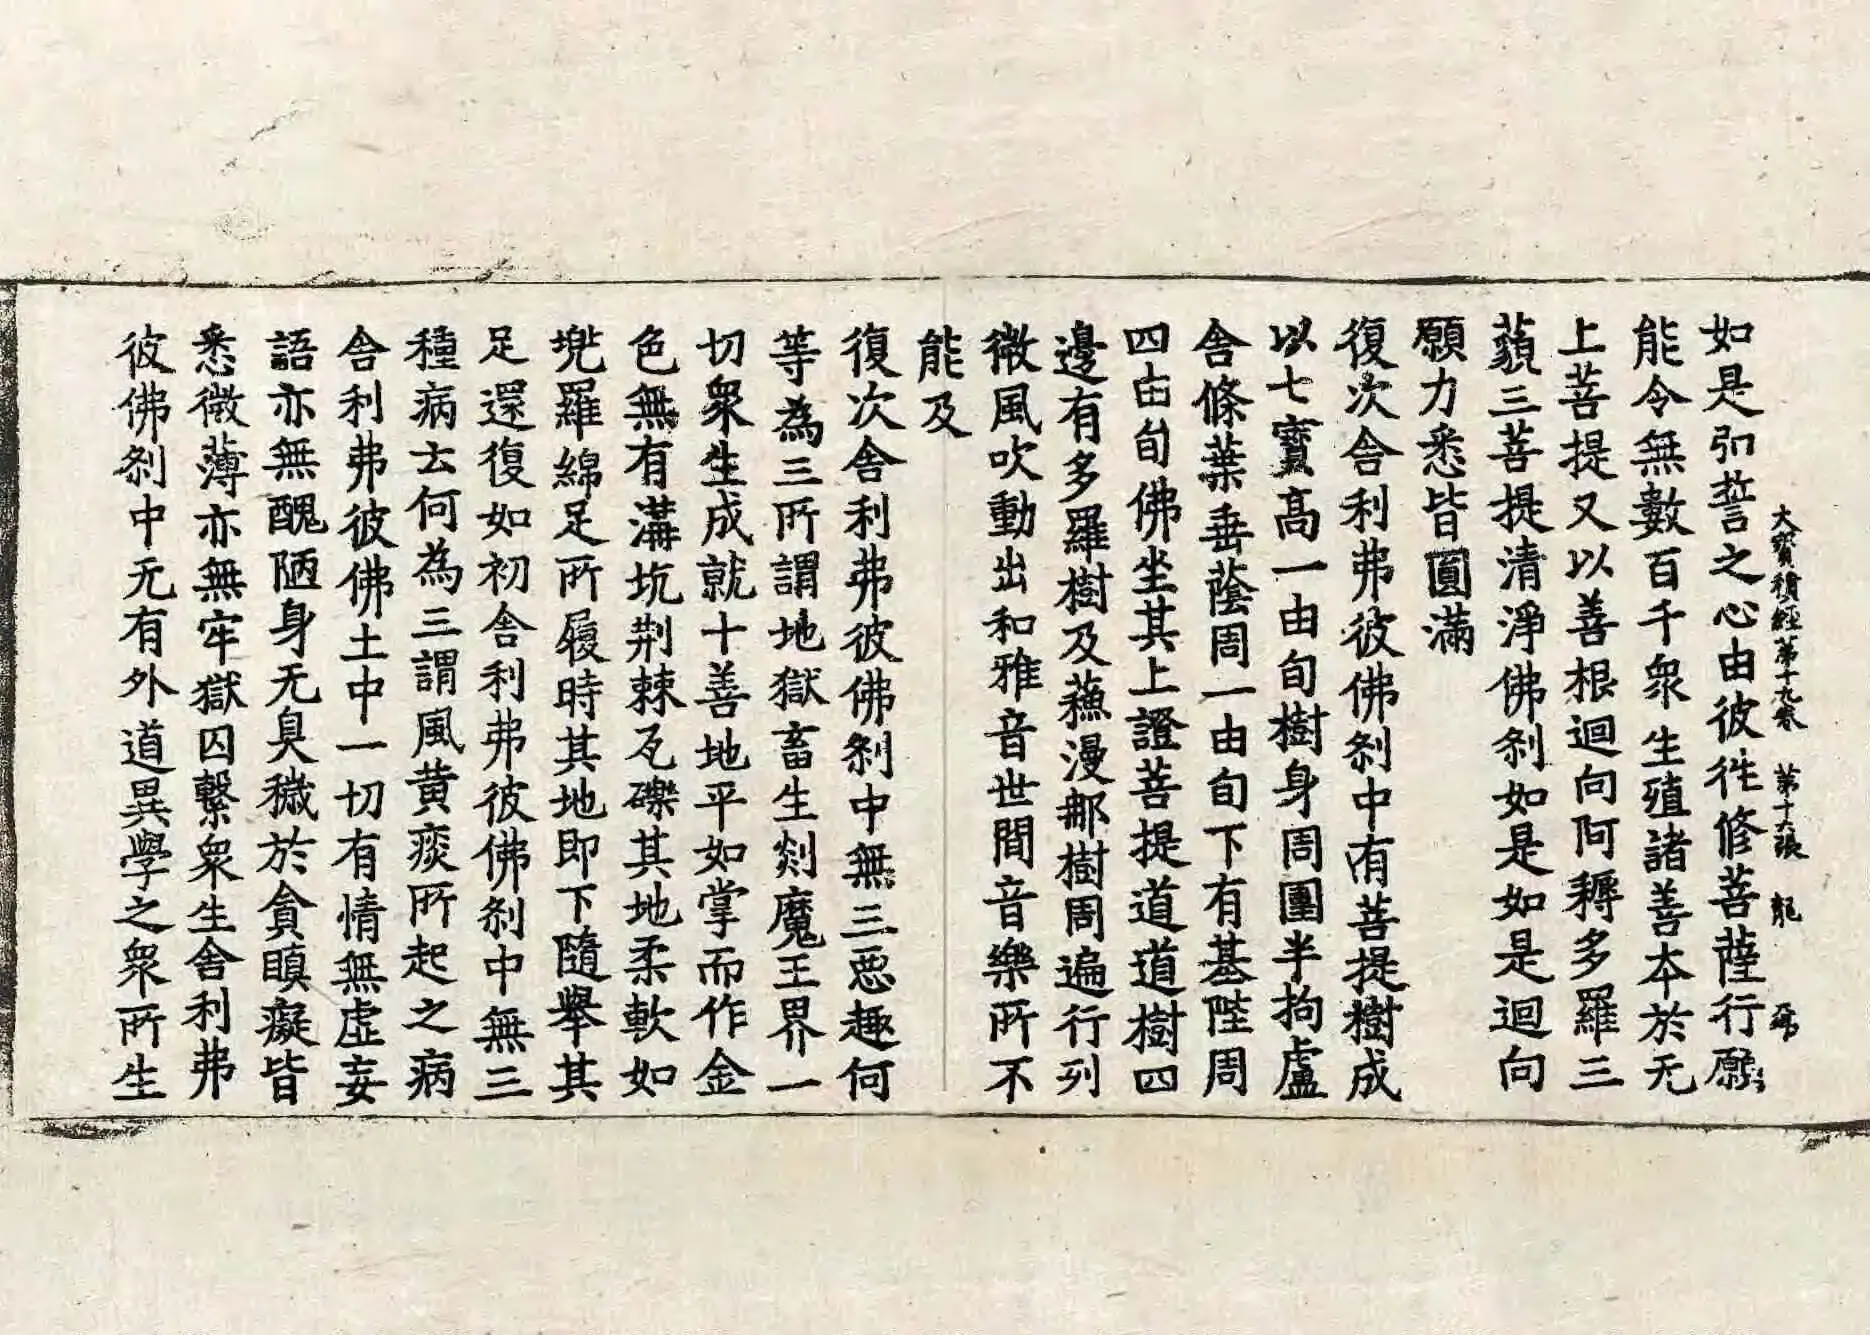 大寶積經第十九卷　第十六張　龍　号
如是弘誓之心由彼徃修菩薩行願
能令無數百千衆生殖諸善本於无
上菩提又以善根迴向阿耨多羅三
藐三菩提清淨佛刹如是如是迴向
願力悉皆圓滿
復次舍利弗彼佛刹中有菩提樹成
以七寶高一由旬樹身周圍半拘盧
舍條葉垂蔭周一由旬下有基陛周
四由旬佛坐其上證菩提道道樹四
邊有多羅樹及蘓漫那樹周遍行列
微風吹動出和雅音世間音樂所不
能及
復次舍利弗彼佛刹中無三惡趣何
等為三所謂地獄畜生剡魔王界一
切衆生成就十善地平如掌而作金
色無有溝坑荆棘瓦礫其地柔軟如
兠羅綿足所履時其地即下隨舉其
足還復如初舍利弗彼佛刹中無三
種病云何為三謂風黄痰所起之病
舍利弗彼佛土中一切有情無虛妄
語亦無醜陋身无臭穢於貪瞋癡皆
悉微薄亦無牢獄囚繫衆生舍利弗
彼佛刹中无有外道異學之衆所生